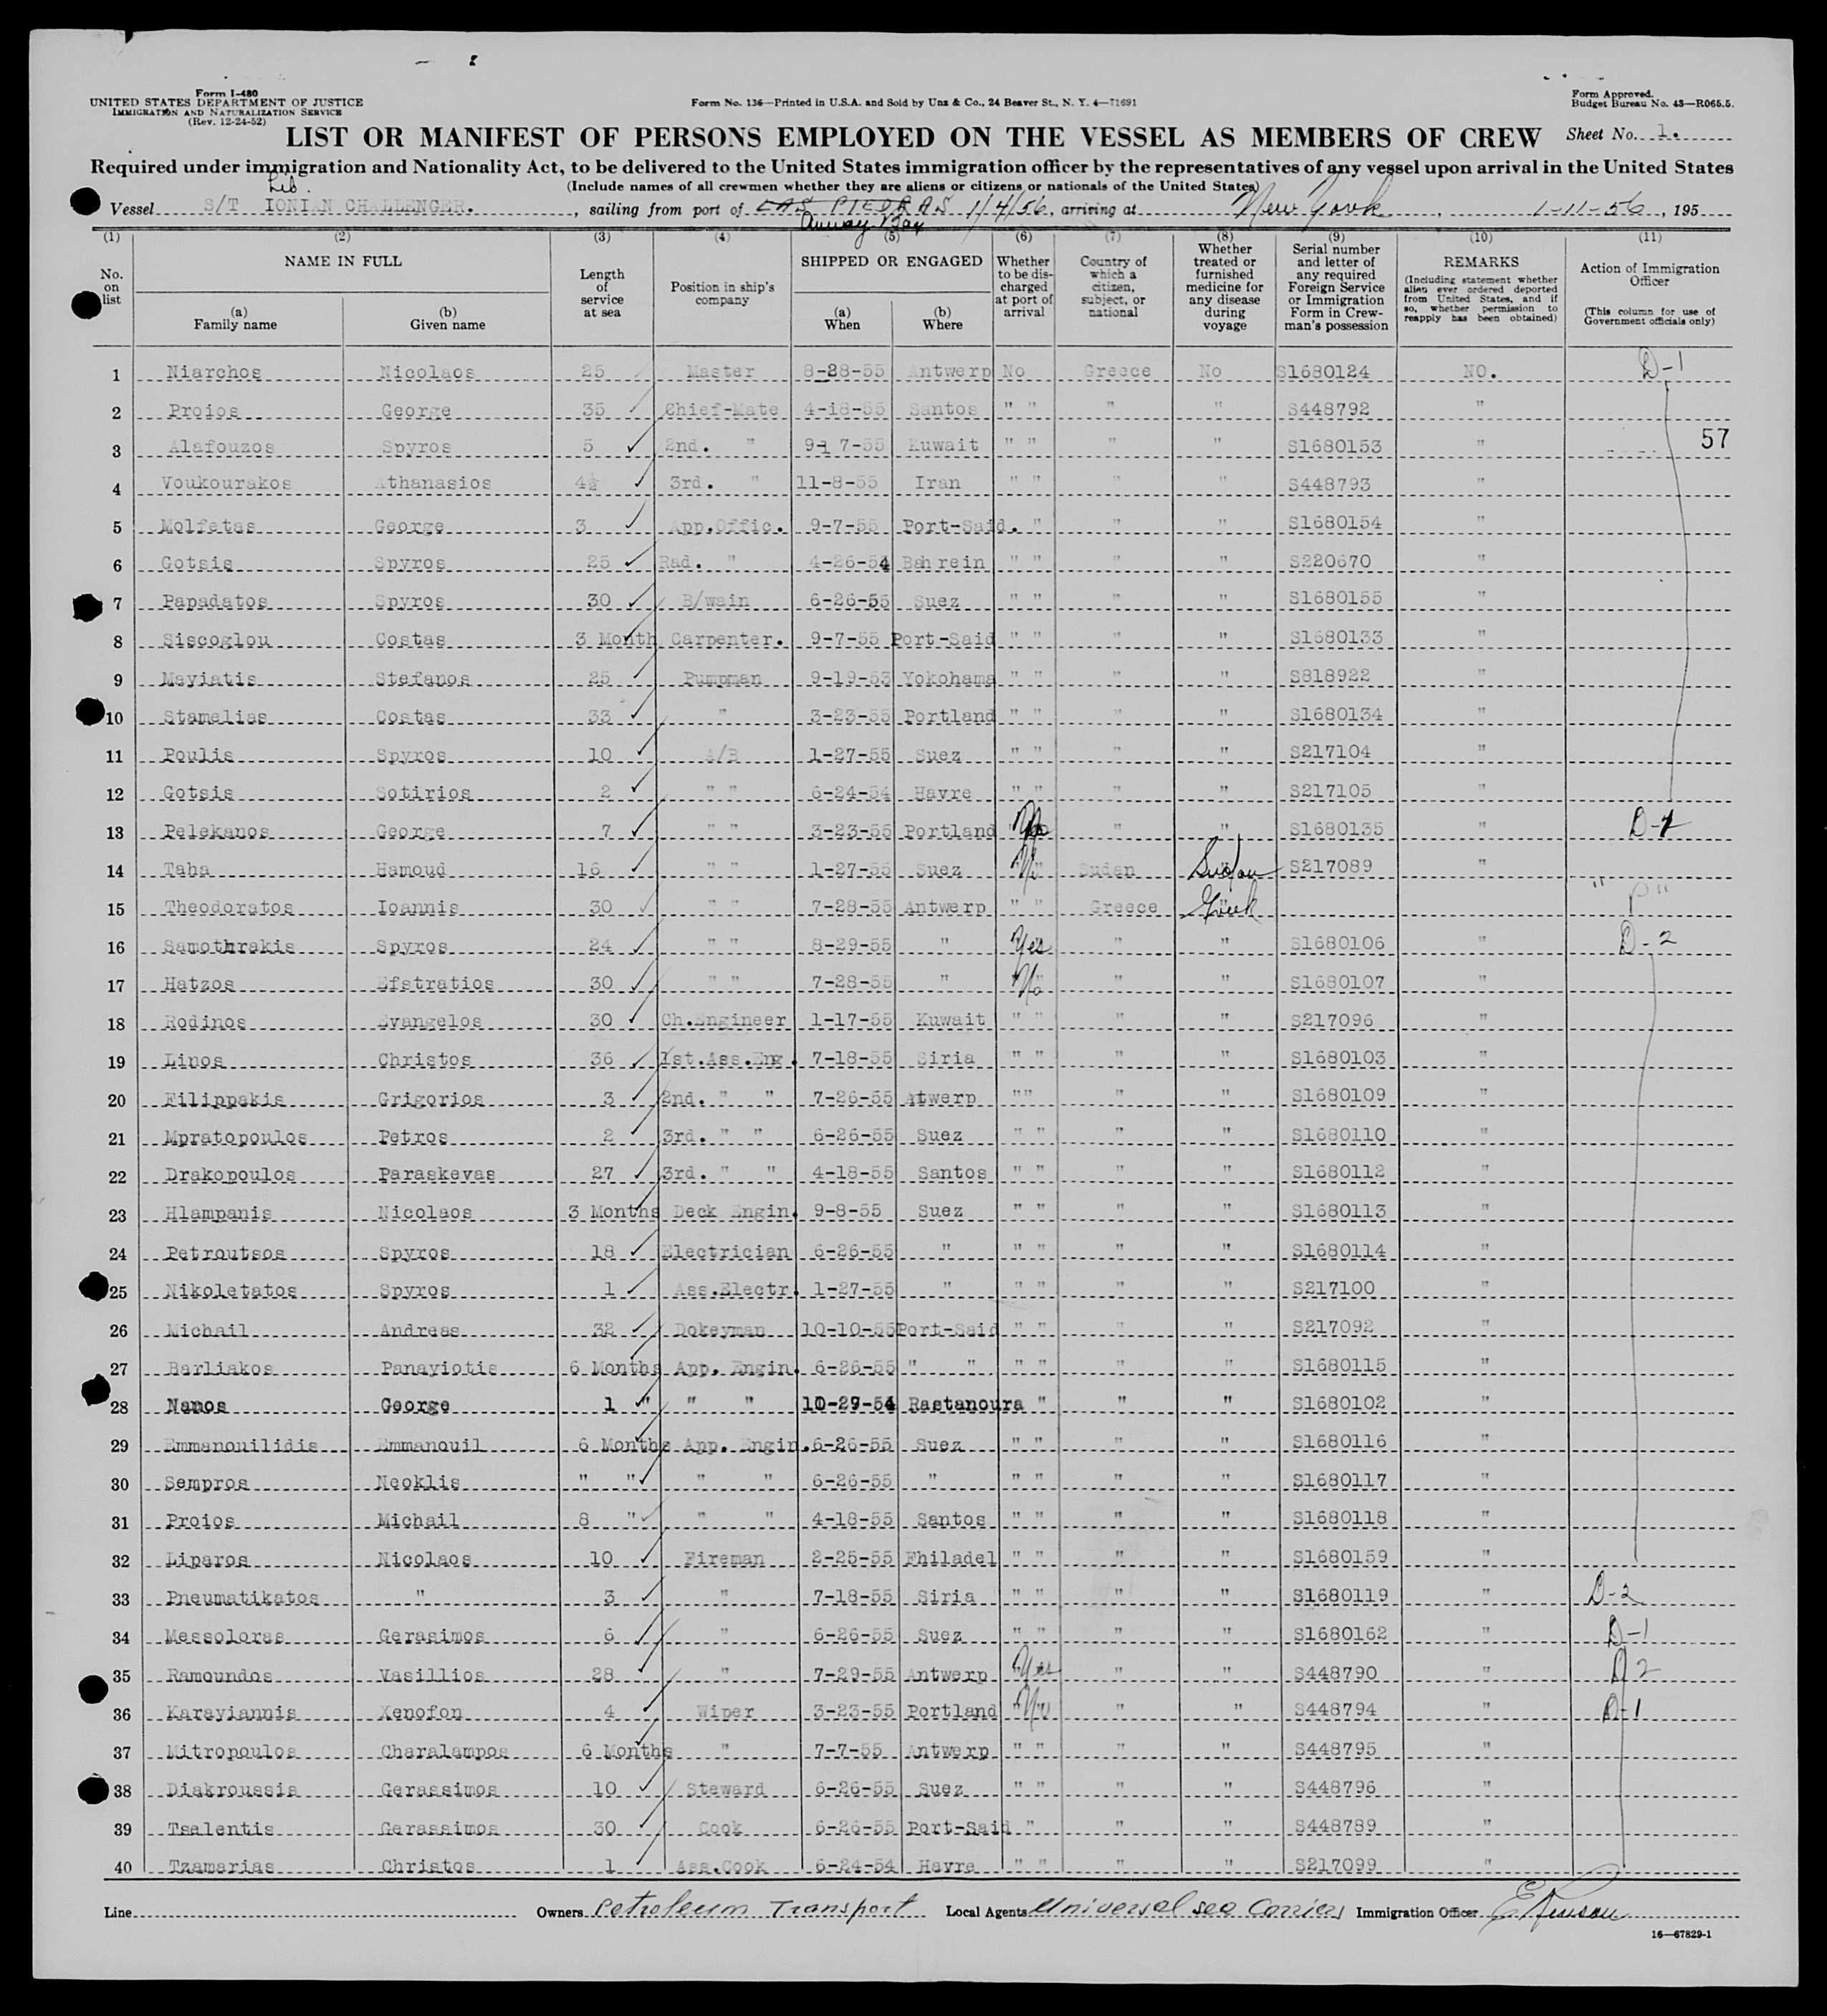 Form I-480
UNITED STATES DEPARTMENT OF JUSTICE
IMMIGRATION AND NATURALIZATION SERVICE
(Rev. 12-24-52)
Form No. 136—Printed in U.S.A. and Sold by Unz & Co., 24 Beaver St., N. Y. 4—71691
Form Approved.
Budget Bureau No. 43—R065.5.
LIST OR MANIFEST OF PERSONS EMPLOYED ON THE VESSEL AS MEMBERS OF CREW Sheet No. 1.
Required under immigration and Nationality Act, to be delivered to the United States immigration officer by the representatives of any vessel upon arrival in the United States
(Include names of all crewmen whether they are aliens or citizens or nationals of the United States)
Lib.
Vessel S/T IONIAN CHALLENGER. , sailing from port of LAS PIEDRAS 1/4/56, arriving at New York , 1-11-56 , 195
Bay
(1) (2) (3) (4) (5) (6) (7) (8) (9) (10) (11)
No. on list
NAME IN FULL
(a) Family name
(b) Given name
Length of service at sea
Position in ship's company
SHIPPED OR ENGAGED
(a) When
(b) Where
Whether to be discharged at port of arrival
Country of which a citizen, subject, or national
Whether treated or furnished medicine for any disease during voyage
Serial number and letter of any required Foreign Service or Immigration Form in Crewman's possession
REMARKS
(Including statement whether alien ever ordered deported from United States, and if so, whether permission to reapply has been obtained)
Action of Immigration Officer
(This column for use of Government officials only)
1 Niarchos Nicolaos 25 Master 8-28-55 Antwerp No Greece No S1680124 NO. D-1
2 Proios George 35 Chief-Mate 4-18-55 Santos " " " " S448792 "
3 Alafouzos Spyros 5 2nd. " 9- 7-55 Kuwait " " " " S1680153 " 57
4 Voukourakos Athanasios 4½ 3rd. " 11-8-55 Iran " " " " S448793 "
5 Molfetas George 3 App.Offic. 9-7-55 Port-Said. " " " S1680154 "
6 Gotsis Spyros 25 Rad. " 4-26-54 Bahrein " " " " S220670 "
7 Papadatos Spyros 30 B/wain 6-26-55 Suez " " " " S1680155 "
8 Siscoglou Costas 3 Month Carpenter. 9-7-55 Port-Said " " " " S1680133 "
9 Mayiatis Stefanos 25 Pumpman 9-19-53 Yokohama " " " " S818922 "
10 Stamelias Costas 33 " 3-23-55 Portland " " " " S1680134 "
11 Poulis Spyros 10 A/B 1-27-55 Suez " " " " S217104 "
12 Gotsis Sotirios 2 " " 6-24-54 Havre " " " " S217105 "
13 Pelekanos George 7 " " 3-23-55 Portland No " " S1680135 "
14 Taha Hamoud 16 " " 1-27-55 Suez No Sudan Sudan S217089 "
15 Theodoratos Ioannis 30 " " 7-28-55 Antwerp " " Greece Greek "P"
16 Samothrakis Spyros 24 " " 8-29-55 " Yes " " S1680106 " D-2
17 Hatzos Efstratios 30 " " 7-28-55 " No " " S1680107 "
18 Rodinos Evangelos 30 Ch.Engineer 1-17-55 Kuwait " " " " S217096 "
19 Linos Christos 36 1st.Ass.Eng. 7-18-55 Siria " " " " S1680103 "
20 Filippakis Grigorios 3 2nd. " " 7-26-55 Atwerp "" " " S1680109 "
21 Mpratopoulos Petros 2 3rd. " " 6-26-55 Suez " " " " S1680110 "
22 Drakopoulos Paraskevas 27 3rd. " " 4-18-55 Santos " " " " S1680112 "
23 Hlampanis Nicolaos 3 Months Deck Engin. 9-8-55 Suez " " " " S1680113 "
24 Petroutsos Spyros 18 Electrician 6-26-55 " " " " " S1680114 "
25 Nikoletatos Spyros 1 Ass.Electr. 1-27-55 " " " " " S217100 "
26 Michail Andreas 32 Dokeyman 10-10-55 Port-Said " " " " S217092 "
27 Barliakos Panayiotis 6 Months App. Engin. 6-26-55 " " " " " " S1680115 "
28 Nanos George 1 " " " 10-29-54 Rastanoura " " " S1680102 "
29 Emmanouilidis Emmanouil 6 Months App. Engin. 6-26-55 Suez " " " " S1680116 "
30 Sempros Neoklis " " " " 6-26-55 " " " " " S1680117 "
31 Proios Michail 8 " " " 4-18-55 Santos " " " " S1680118 "
32 Liparos Nicolaos 10 Fireman 2-25-55 Philadel " " " " S1680159 "
33 Pneumatikatos " 3 " 7-18-55 Siria " " " " S1680119 " D-2
34 Messoloras Gerasimos 6 " 6-26-55 Suez " " " " S1680162 " D-1
35 Ramoundos Vasillios 28 " 7-29-55 Antwerp Yes " " S448790 " D 2
36 Karayiannis Xenofon 4 Wiper 3-23-55 Portland No " " S448794 " D-1
37 Mitropoulos Charalampos 6 Months " 7-7-55 Antwerp " " " " S448795 "
38 Diakroussis Gerassimos 10 Steward 6-26-55 Suez " " " " S448796 "
39 Tselentis Gerassimos 30 Cook 6-26-55 Port-Said " " " S448789 "
40 Tzamarias Christos 1 Ass.Cook 6-24-54 Havre " " " " S217099 "
Line Owners Petroleum Transport Local Agents Universal Sea Carriers Immigration Officer
16—67829-1